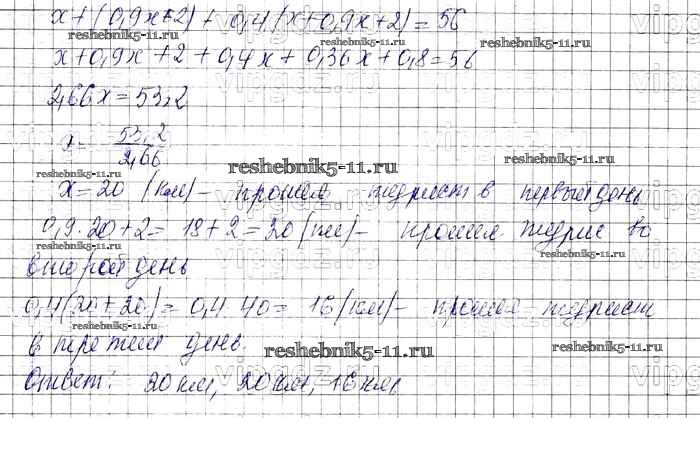 x+(0,9x+2)+0,4(x+0,9x+2)=56
reshebnik5-11.ru
reshebnik5-11.ru
x+0,9x+2+0,4x+0,36x+0,8=56
reshebnik5-11.ru
2,66x=53,2
x= 53,2
2,66
reshebnik5-11.ru
reshebnik5-11.ru
reshebnik5-11.ru
x=20 (км)- прошел турист в первый день
0,9·20+2=18+2=20 (км)- прошел турис во
reshebnik5-11.ru
reshebnik5-11.ru
второй день
0,4(20+20)=0,4·40=16 (км)- прошел турист
reshebnik5-11.ru
reshebnik5-11.ru
в третий день.
reshebnik5-11.ru
Ответ: 20 км, 20 км, 16 км.
reshebnik5-11.ru
reshebnik5-11.ru